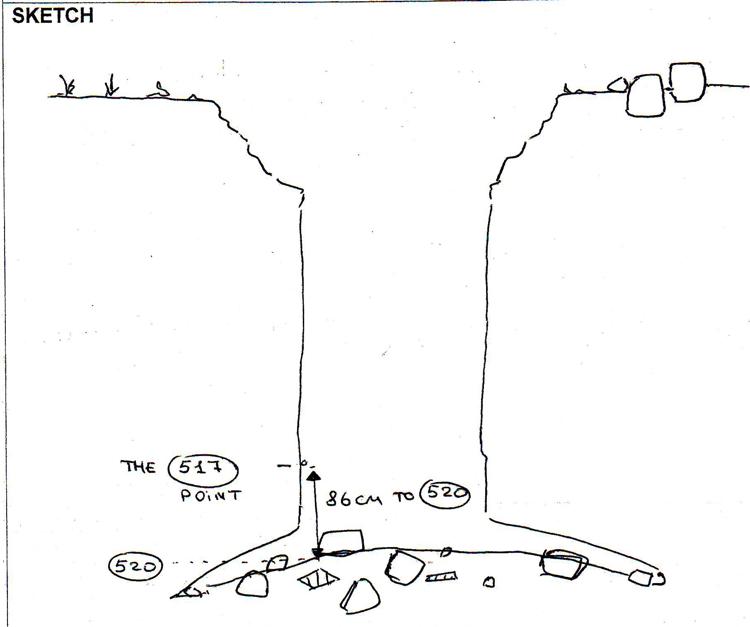 SKETCH
THE 517
POINT
86CM TO 520
520